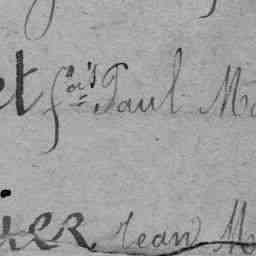 et fais Paul Ma
ier Jean M